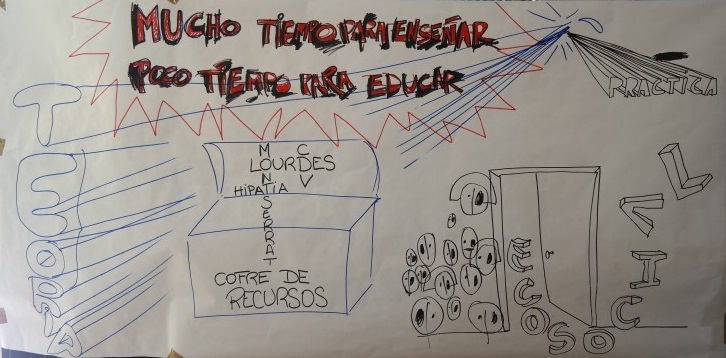 MUCHO TIEMPO PARA ENSEÑAR
POCO TIEMPO PARA EDUCAR
PRACTICA
TEORIA
MONTSERRAT
LOURDES
HIPATIA
COFRE DE
RECURSOS
ECOSOCIAL